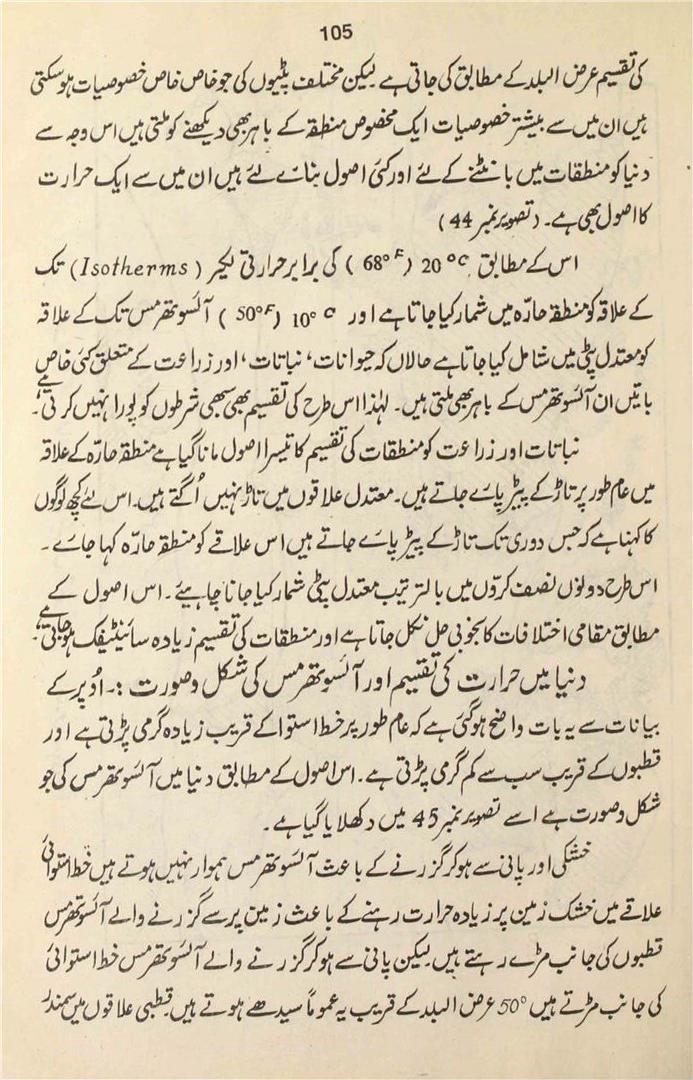 105
کی تقسیم عرض البلد کے مطابق کی جاتی ہے لیکن مختلف پٹیوں کی جو خاص خاص خصوصیات ہو سکتی
ہیں ان میں سے بیشتر خصوصیات ایک مخصوص منطقہ کے باہر بھی دیکھنے کو ملتی ہیں اس وجہ سے
دنیا کو منطقات میں بانٹنے کے لئے اور کئی اصول بنائے گئے ہیں ان میں سے ایک حرارت
کا اصول بھی ہے۔ (تصویر نمبر 44)
اس کے مطابق 20°C (68°F) کی برابر حرارتی لکیر (Isotherms) تک
کے علاقہ کو منطقہ حارّہ میں شمار کیا جاتا ہے اور 10°C (50°F) آئسوتھرمس تک کے علاقہ
کو معتدل پٹی میں شامل کیا جاتا ہے حالاں کہ حیوانات، نباتات، اور زراعت کے متعلق کئی خاص
باتیں ان آئسوتھرمس کے باہر بھی ملتی ہیں۔ لہٰذا اس طرح کی تقسیم بھی سبھی شرطوں کو پورا نہیں کرتی ہے۔
نباتات اور زراعت کو منطقات کی تقسیم کا تیسرا اصول مانا گیا ہے منطقہ حارّہ کے علاقہ
میں عام طور پر تاڑ کے پیڑ پائے جاتے ہیں۔ معتدل علاقوں میں تاڑ نہیں اُگتے ہیں۔ اس لئے کچھ لوگوں
کا کہنا ہے کہ جس دوری تک تاڑ کے پیڑ پائے جاتے ہیں اس علاقے کو منطقہ حارّہ کہا جائے۔
اس طرح دونوں نصف کرّوں میں بالترتیب معتدل پٹی شمار کیا جانا چاہیئے۔ اس اصول کے
مطابق مقامی اختلافات کا بخوبی حل نکل جاتا ہے اور منطقات کی تقسیم زیادہ سائنٹیفک ہو جاتی ہے۔
دنیا میں حرارت کی تقسیم اور آئسوتھرمس کی شکل و صورت :۔ اُوپر کے
بیانات سے یہ بات واضح ہو گئی ہے کہ عام طور پر خط استوا کے قریب زیادہ گرمی پڑتی ہے اور
قطبوں کے قریب سب سے کم گرمی پڑتی ہے۔ اس اصول کے مطابق دنیا میں آئسوتھرمس کی جو
شکل و صورت ہے اسے تصویر نمبر 45 میں دکھلایا گیا ہے۔
خشکی اور پانی سے ہو کر گزرنے کے باعث آئسوتھرمس ہموار نہیں ہوتے ہیں خط استوائی
علاقے میں خشک زمین پر زیادہ حرارت رہنے کے باعث زمین پر سے گزرنے والے آئسوتھرمس
قطبوں کی جانب مڑے رہتے ہیں۔ لیکن پانی سے ہو کر گزرنے والے آئسوتھرمس خط استوائی
کی جانب مڑتے ہیں 50° عرض البلد کے قریب یہ عموماً سیدھے ہوتے ہیں۔ قطبی علاقوں میں سمندر